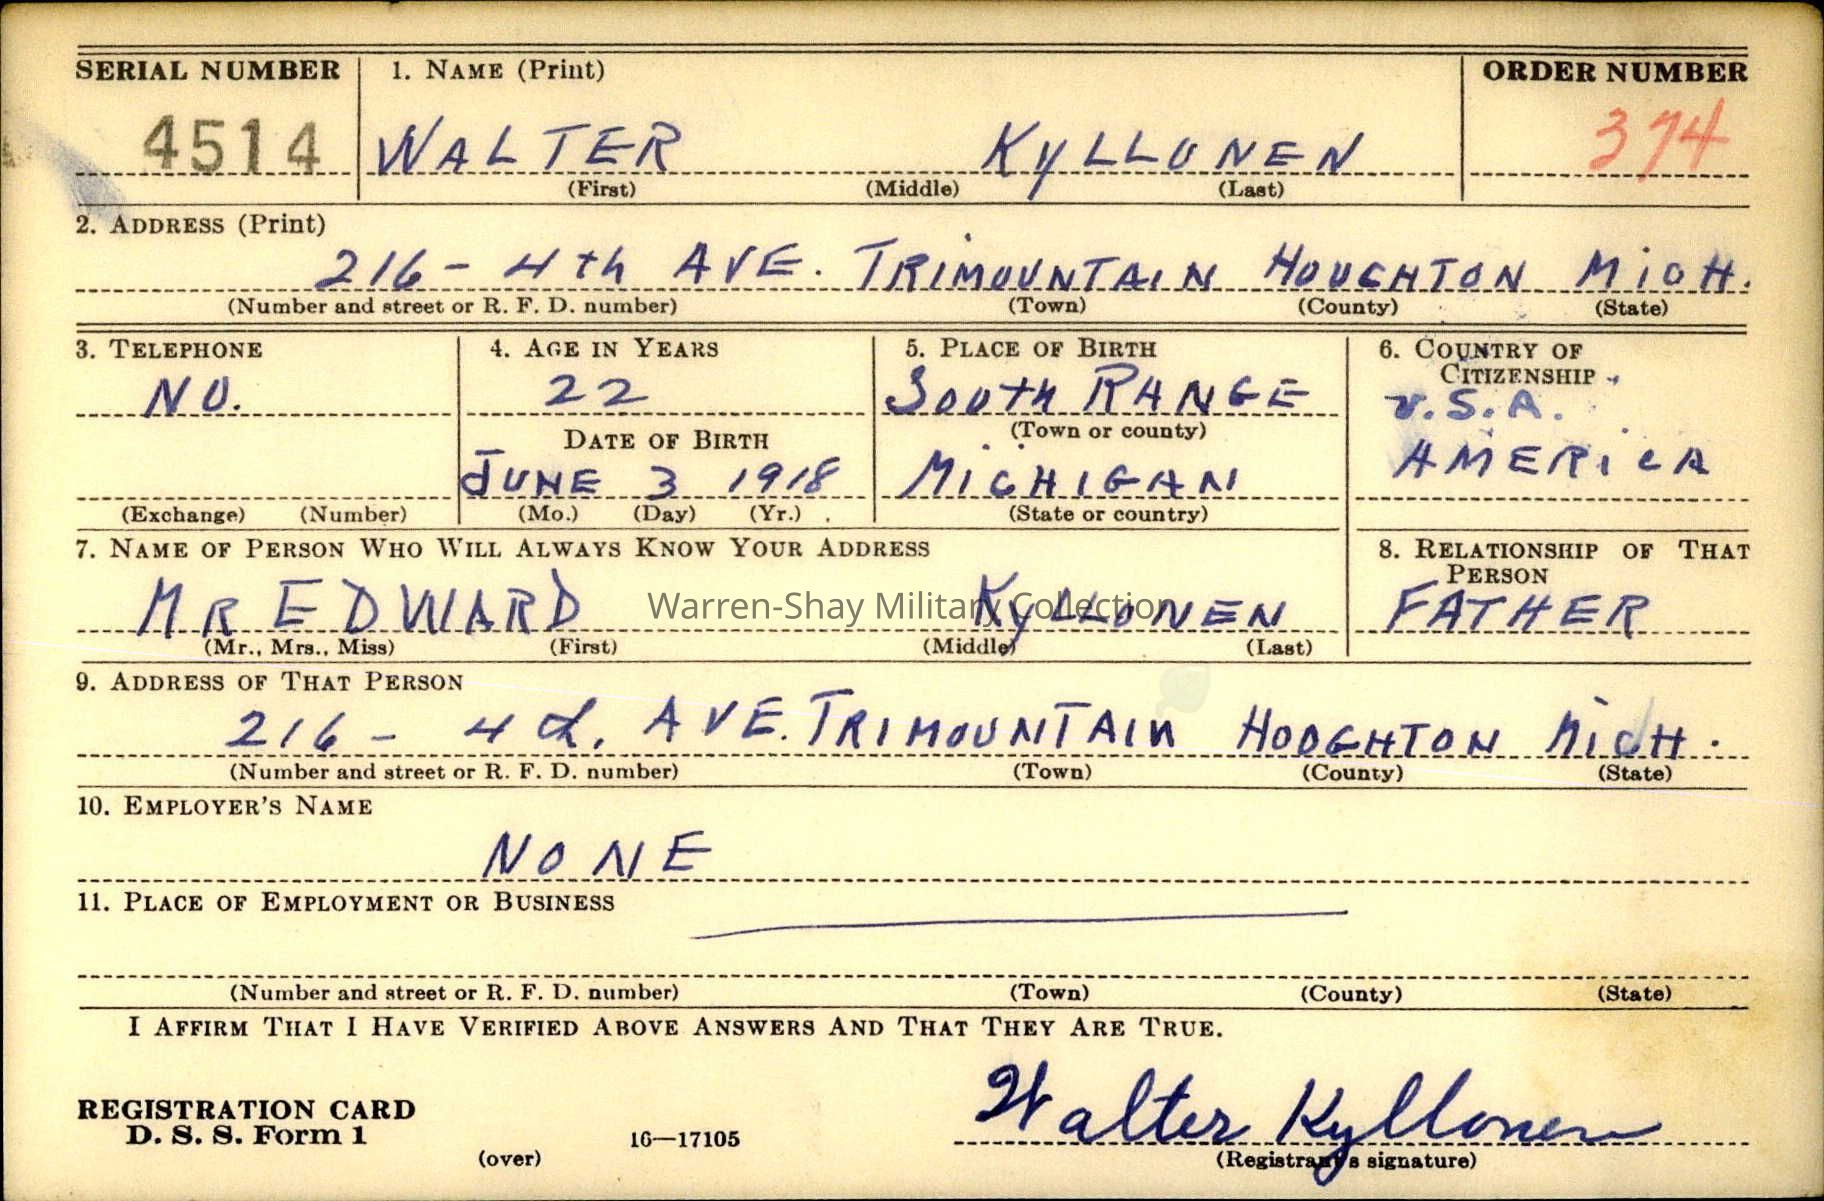 SERIAL NUMBER 1. NAME (Print) ORDER NUMBER
4514 WALTER KYLLONEN 374
(First) (Middle) (Last)
2. ADDRESS (Print)
216 - 4th AVE. TRIMOUNTAIN HOUGHTON MICH.
(Number and street or R. F. D. number) (Town) (County) (State)
3. TELEPHONE 4. AGE IN YEARS 5. PLACE OF BIRTH 6. COUNTRY OF
CITIZENSHIP
NO. 22 SOUTH RANGE U.S.A.
DATE OF BIRTH (Town or county)
JUNE 3 1918 MICHIGAN AMERICA
(Exchange) (Number) (Mo.) (Day) (Yr.) (State or country)
7. NAME OF PERSON WHO WILL ALWAYS KNOW YOUR ADDRESS 8. RELATIONSHIP OF THAT
PERSON
MR EDWARD KYLLONEN FATHER
Warren-Shay Military Collection
(Mr., Mrs., Miss) (First) (Middle) (Last)
9. ADDRESS OF THAT PERSON
216 - 4th. AVE. TRIMOUNTAIN HOUGHTON MICH.
(Number and street or R. F. D. number) (Town) (County) (State)
10. EMPLOYER'S NAME
NONE
11. PLACE OF EMPLOYMENT OR BUSINESS
(Number and street or R. F. D. number) (Town) (County) (State)
I AFFIRM THAT I HAVE VERIFIED ABOVE ANSWERS AND THAT THEY ARE TRUE.
REGISTRATION CARD
D. S. S. Form 1 Walter Kyllonen
(over) 16—17105 (Registrant's signature)